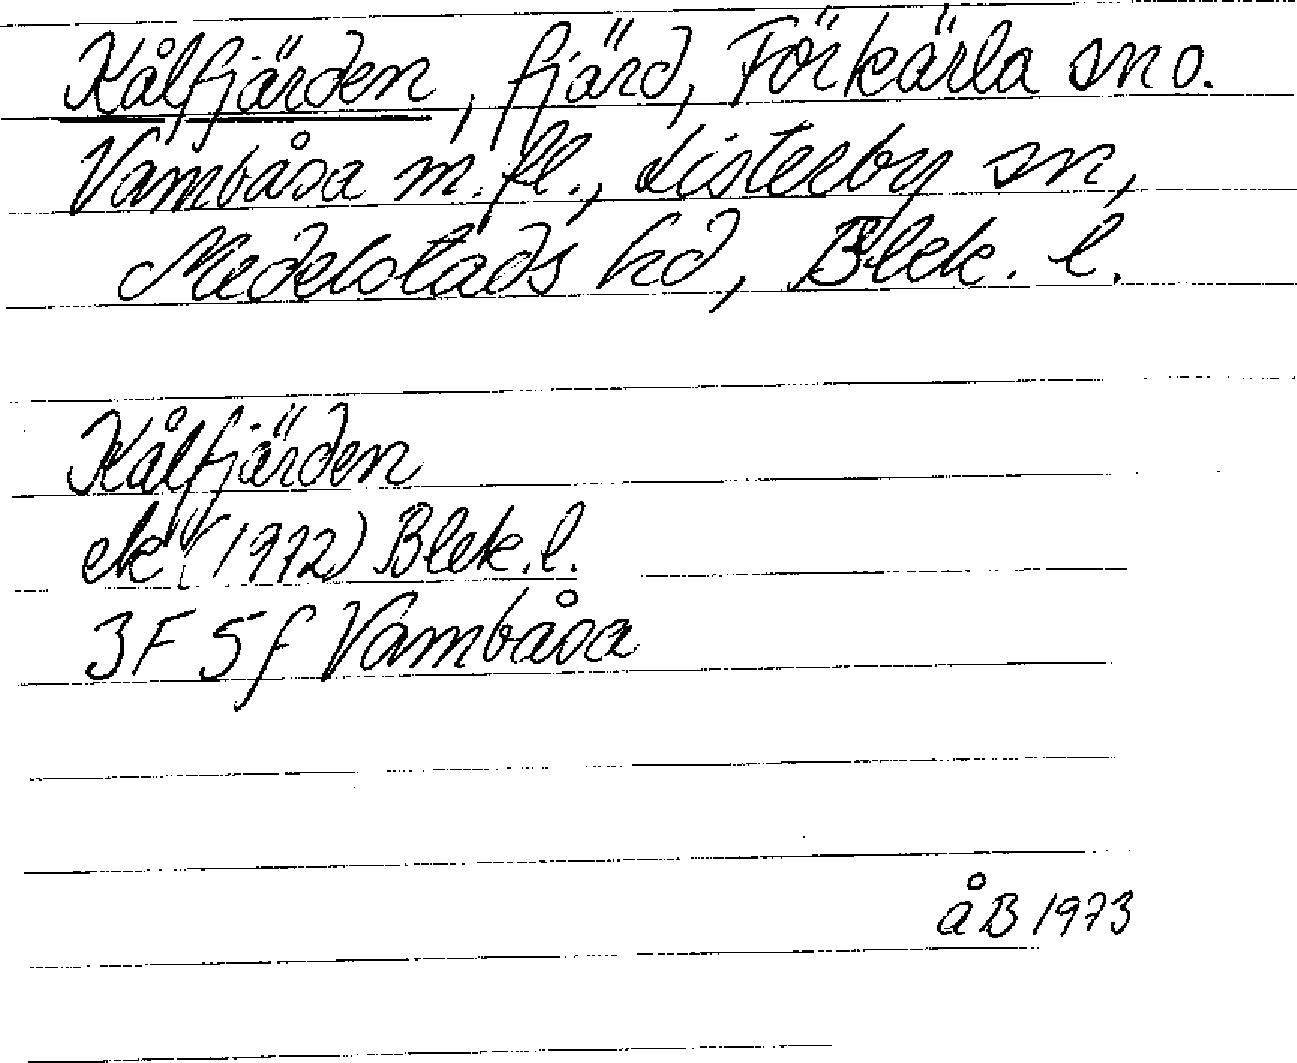 Kålfjärden, fjärd, Förkärla sn o.
Vambåsa m.fl., Listerby sn,
Medelstads hd, Blek. l.
Kålfjärden
ek (1972) Blek.l.
3F 5f Vambåsa
åB 1973